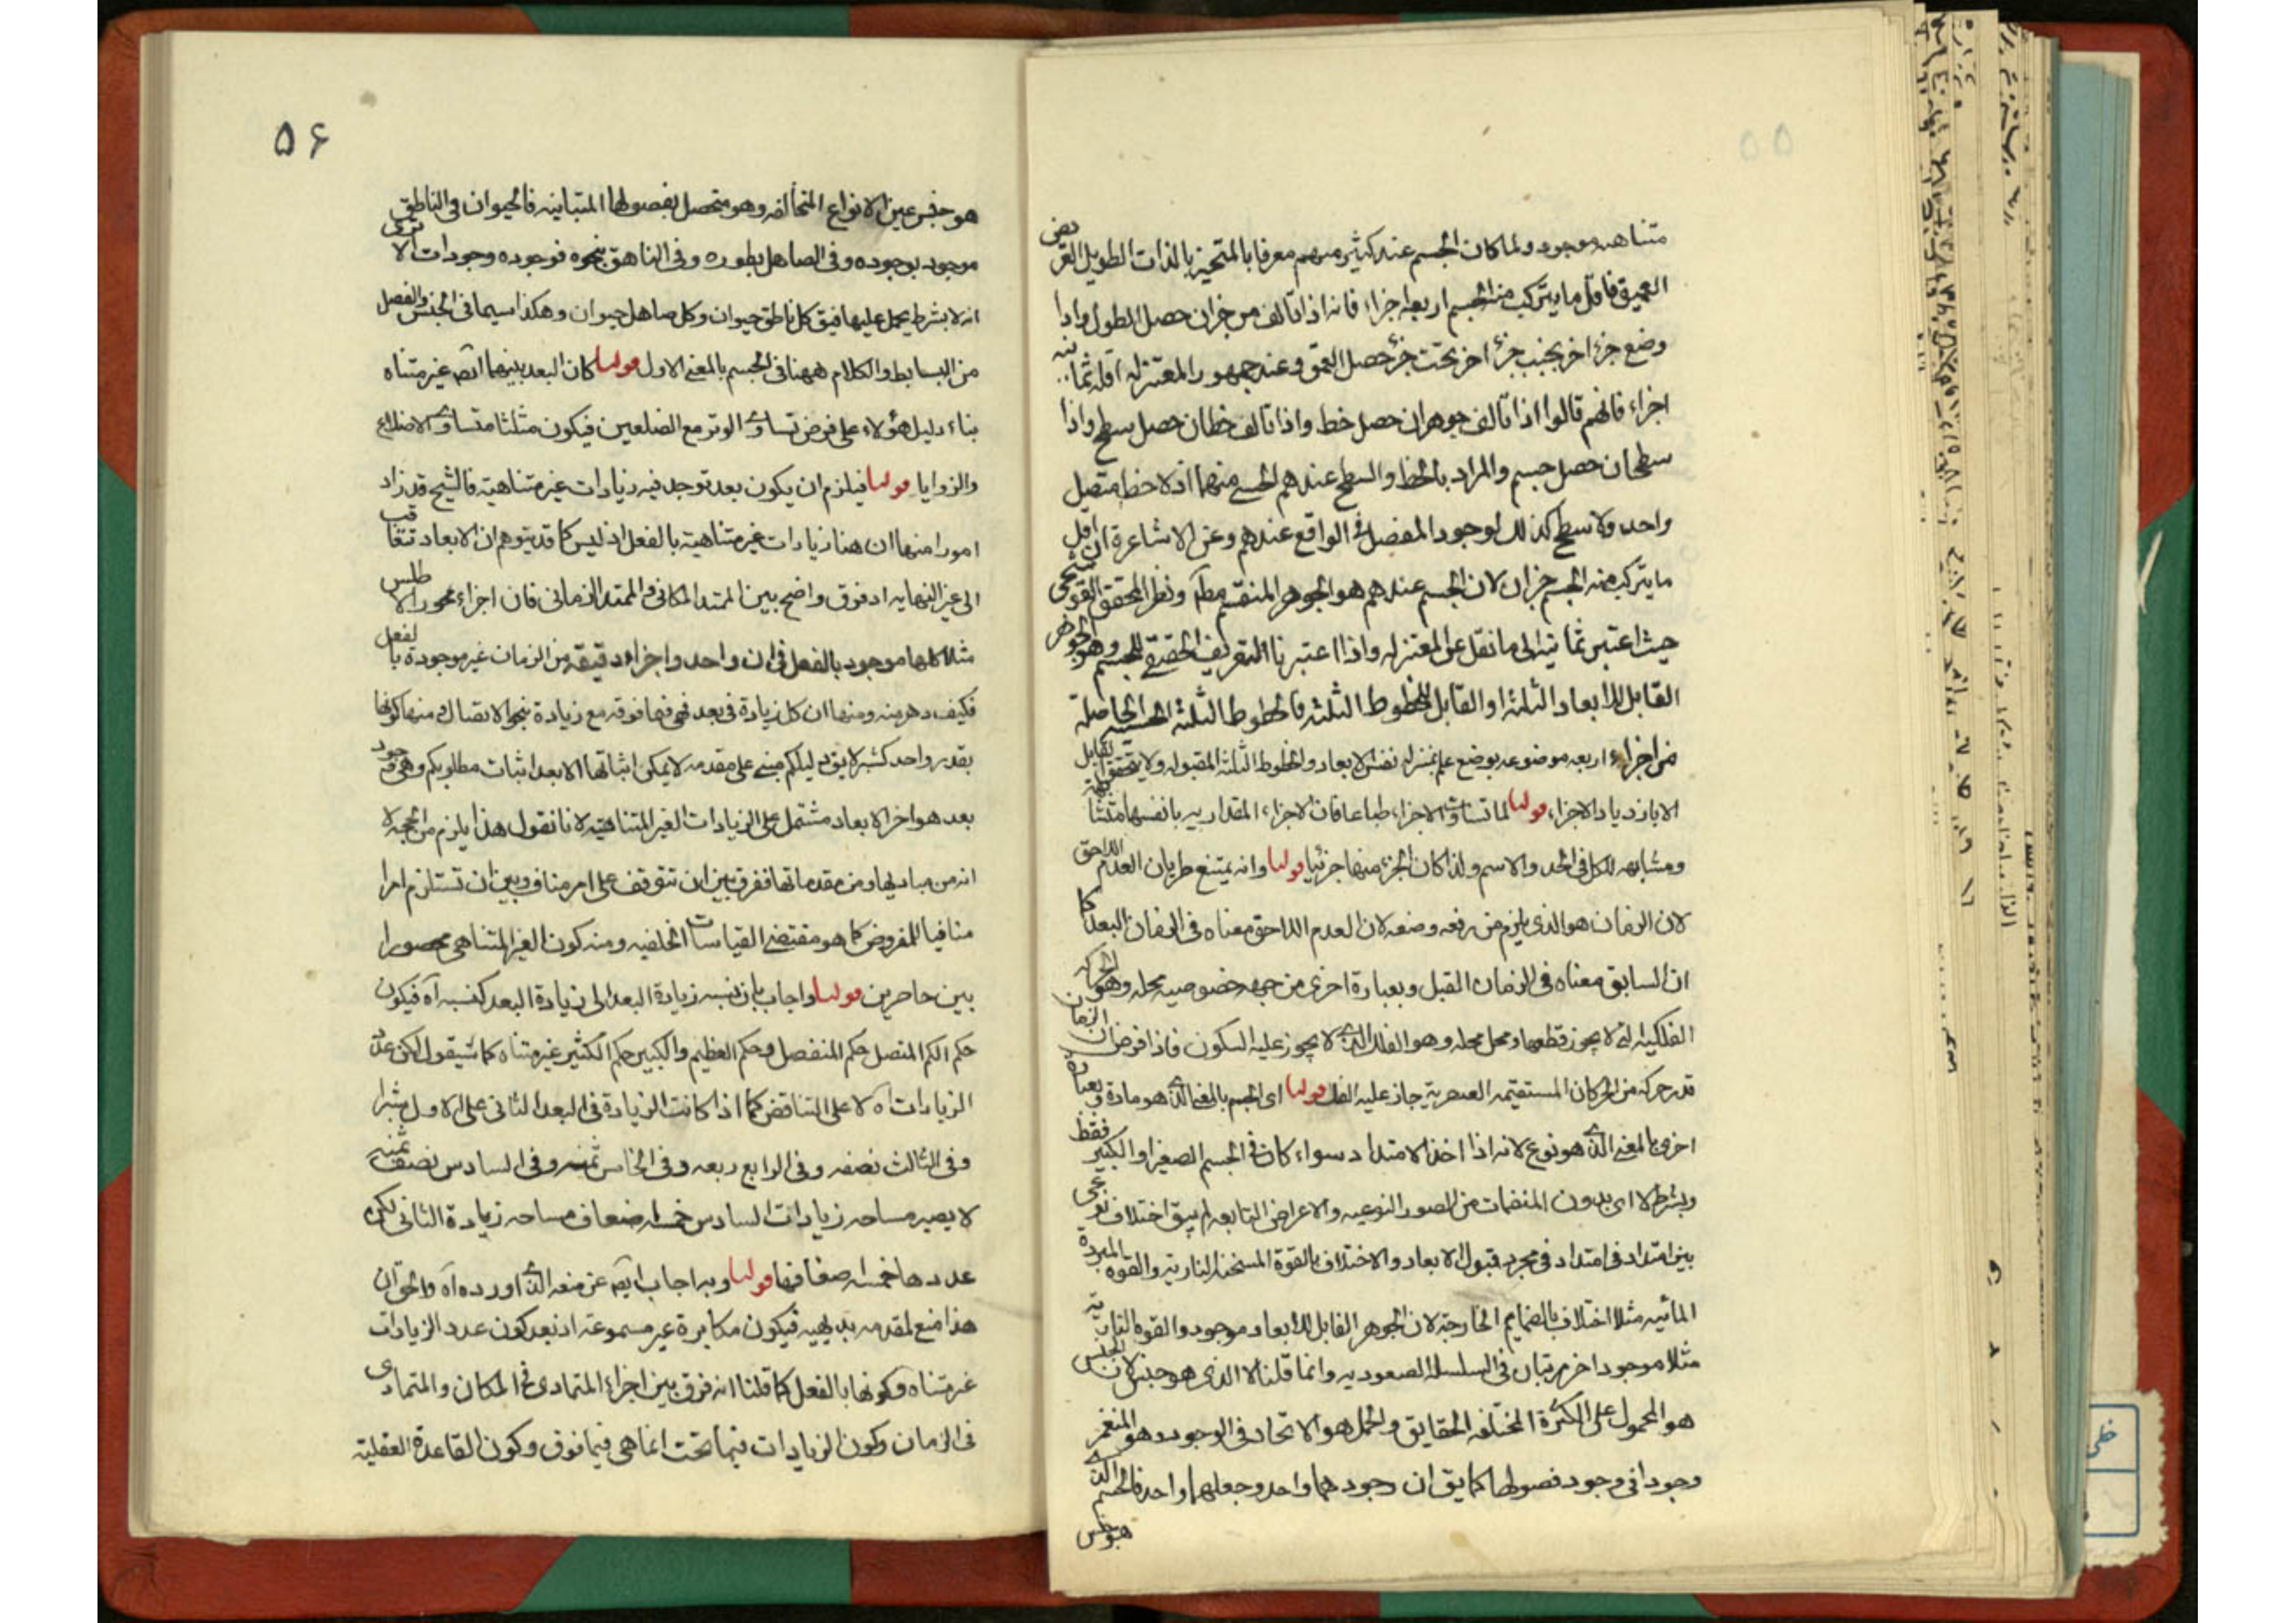 ۵۵
متناهیه موجود ولما كان الجسم عند كثیر منهم معرفا بالمتحیز بالذات الطویل العریض
العمیق فاقل ما یتركب منه الجسم اربعه اجزاء فانه اذا تالف من جزان حصل الطول واذا
وضع جزء اخر بجنب جزء اخر تحت جزء حصل العمق وعند جمهور المعتزله اقله ثمانیه
اجزاء فانهم قالوا اذا تالف جوهران حصل خط واذا تالف خطان حصل سطح واذا
سطحان حصل جسم والمراد بالخط والسطح عندهم الحسی منهما اذ لا خط متصل
واحد ولا سطح كذلك لوجود المفصل فی الواقع عندهم وعن الاشاعرة ان اقل
ما یتركب منه الجسم جزان لان الجسم عندهم هو الجوهر المنقسم مطلقا ونظر المحقق القوشجی
حیث اعتبر ثمانیه الی ما نقل عن المعتزله واذا اعتبرنا التعریف الحقیقی للجسم وهو الجوهر
القابل للابعاد الثلثة او القابل للخطوط الثلثه فالخطوط الثلثة الحاصلة
من اجزاء اربعه موضوعه بوضع علم بمنزله نفس الابعاد والخطوط الثلثه المقبوله ولا یتحقق القابل لها
الا بازدیاد الاجزاء قولنا لما تساوت الاجزاء طباعا فان الاجزاء المقداریه بانفسها متشابهة
ومشابهه للكل فی الحد والاسم ولذا كان الجزء منها جزئیا قولنا وانه یمتنع طریان العدم اللاحق
لان الزمان هو الذی یلزم من رفعه وضعه لان العدم اللاحق معناه فی الزمان البعد كما
ان السابق معناه فی الزمان القبل وبعبارة اخری من جهه خصوصیه محله وهو الحركه
الفلكیه التی لا یجوز قطعها ومحل محله وهو الفلك الذی لا یجوز علیه السكون فاذا فرض ان الزمان
قدر حركه من الحركات المستقیمه العنصریة جاز علیه الفك قولنا ای الجسم بالمعنی الذی هو مادة وبعبارة
اخری بالمعنی الذی هو نوع لانه اذا اخذ الامتداد سواء كان فی الجسم الصغیر او الكبیر فقط
وبشرط لا ای بدون المنضمات من الصور النوعیه والاعراض التابعه لم یبق اختلاف نوعی
بین امتداد فی امتداد فی مجرد قبول الابعاد والاختلاف بالقوة المسخنه الناریه والقوه المبردة
المائیه مثلا اختلاف بالضمایم الخارجة لان الجوهر القابل للابعاد موجود والقوه الناریة
مثلا موجود اخر مرتبان فی السلسله الصعودیه وانما قلنا لا الذی هو جنس لان الجنس
هو المحمول علی الكثرة المختلفه الحقایق والحمل هو الاتحاد فی الوجود وهو المنغمر
وجودا فی وجود فصولها كما یق ان وجودهما واحد وجعلهما واحد فالجسم الذی
هو جنس
۵۶
هو جنس عین الانواع المتخالفه وهو متحصل بفصولها المتباینه فالحیوان فی الناطق
موجود بوجوده وفی الصاهل بطوره وفی الناهق بنحوه فوجوده وجودات الا تری
انه لا بشرط یحمل علیها فیق كل ناطق حیوان وكل صاهل حیوان وهكذا سیما فی الجنس والفصل
من البسایط والكلام ههنا فی الجسم بالمعنی الاول قولنا كان البعد بینهما ایضا غیر متناه
بناء دلیل هؤلاء علی فرض تساوی الوتر مع الضلعین فیكون مثلثا متساوی الاضلاع
والزوایا قولنا فیلزم ان یكون بعد توجد فیه زیادات غیر متناهیة فالشیخ قد زاد
امورا منها ان هنا زیادات غیر متناهیة بالفعل اذ لیس كما قد یتوهم ان الابعاد تتعاقب
الی غیر النهایه اذ فرق واضح بین الممتد المكانی والممتد الزمانی فان اجزاء محور الاطلس
مثلا كلها موجود بالفعل فی ان واحد واجزاء دقیقة من الزمان غیر موجودة بالفعل
فكیف دهر منه ومنها ان كل زیادة فی بعد فهی فیما فوقه مع زیادة بنحو الاتصال ومنها كونها
بقدر واحد كشبر لا یق دلیلكم مبنی علی مقدمه لا یمكن اثباتها الا بعد اثبات مطلوبكم وهی وجود
بعد هو اخر الابعاد مشتمل علی الزیادات الغیر المتناهیه لانا نقول هذا یلزم من الحجه لا
انه من مبادیها ومن مقدماتها ففرق بین ان تتوقف علی امر مناف وبین ان تستلزم امرا
منافیا للمفروض كما هو مقتضی القیاسات الخلفیه ومنه كون الغیر المتناهی محصورا
بین حاصرین قولنا واجاب بان نسبه زیادة البعد الی زیادة البعد كنسبه آه فیكون
حكم الكم المتصل حكم المنفصل وحكم العظیم والكبیر حكم الكثیر غیر متناه كما سیقول لكن عدد
الزیادات آه لا علی التناقض كما اذا كانت الزیادة فی البعد الثانی علی الاول شبرا
وفی الثالث نصفه وفی الرابع ربعه وفی الخامس ثمنه وفی السادس نصف ثمنه
لا یصیر مساحه زیادات السادس خمسه اضعاف مساحه زیادة الثانی لكن
عددها خمسه اضعافها قولنا وبه اجاب ایضا عن منعه الذی اورده آه والحق ان
هذا منع لمقدمه بدیهیه فیكون مكابرة غیر مسموعة اذ بعد كون عدد الزیادات
غیر متناه وكونها بالفعل كما قلنا انه فرق بین اجزاء المتمادی فی المكان والمتمادی
فی الزمان وكون الزیادات فیما تحت انما هی فیما فوق وكون القاعدة العقلیة